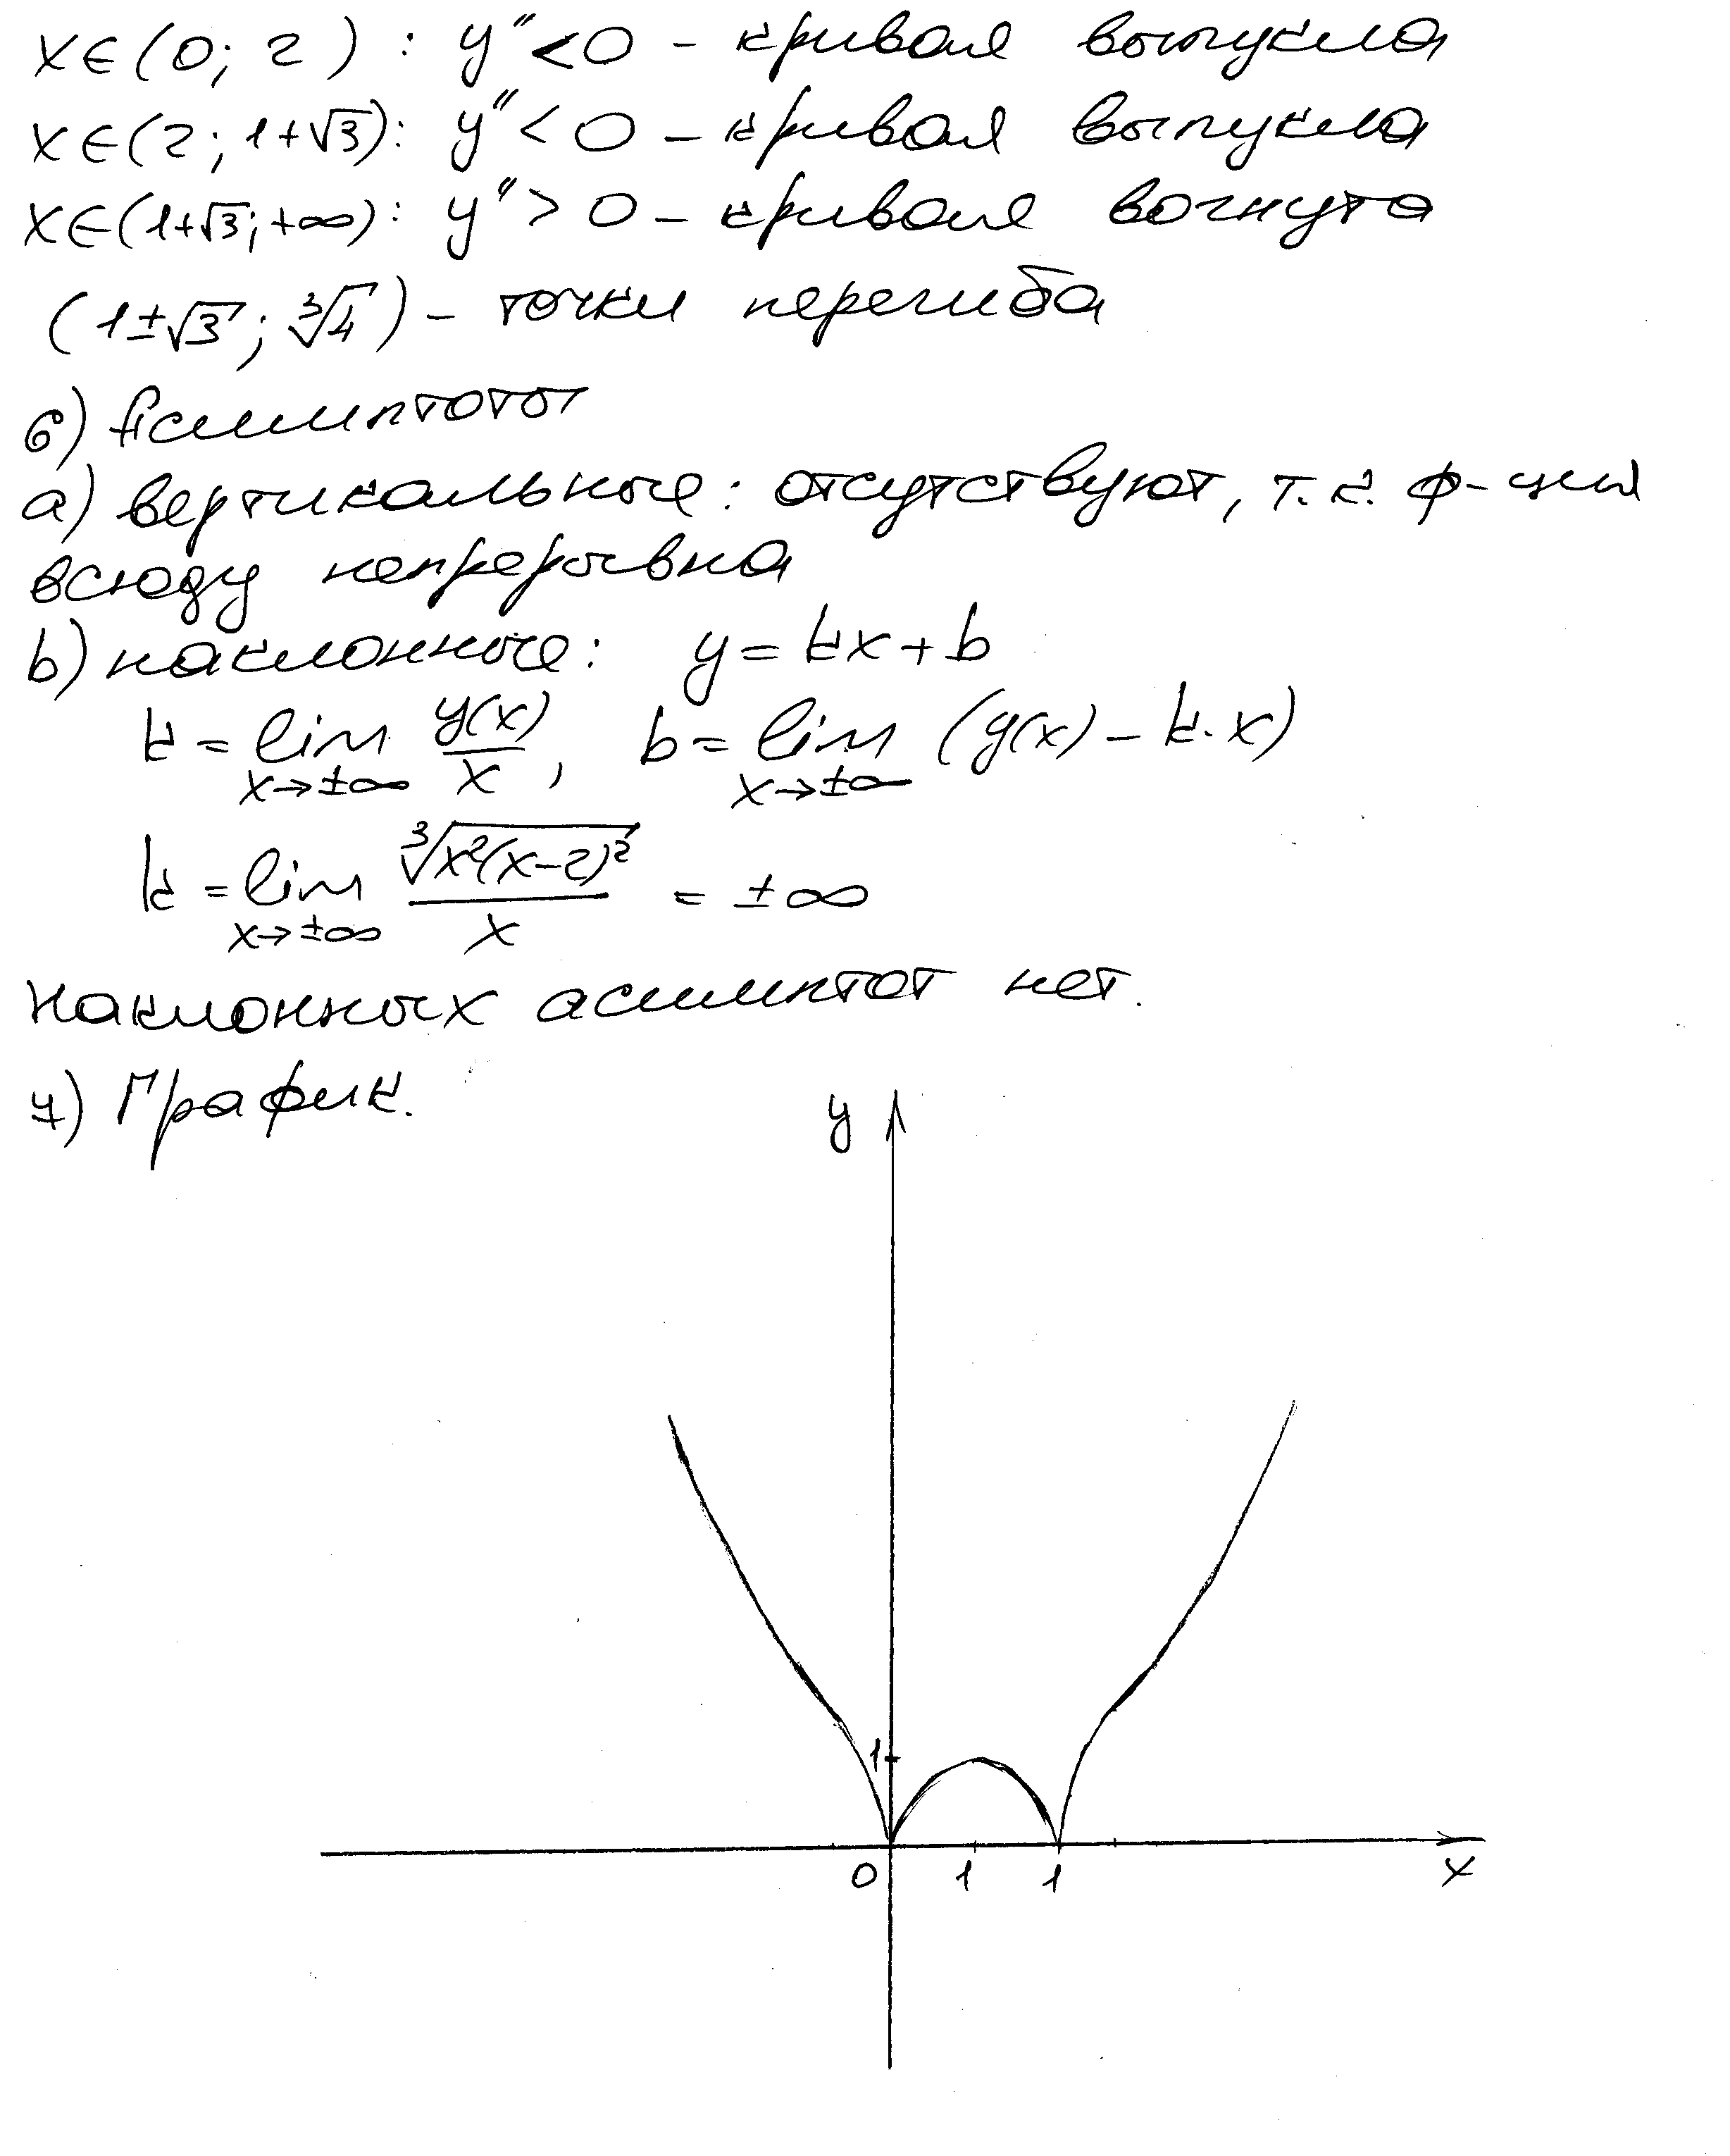 x∈(0; 2) : y″<0 – кривая выпукла
x∈(2; 1+√3): y″<0 – кривая выпукла
x∈(1+√3; +∞): y″>0 – кривая вогнута
(1±√3; ∛4) – точки перегиба
6) Асимптоты
a) вертикальные: отсутствуют, т.к. ф-ция
всюду непрерывна
b) наклонные: y = kx + b
k = lim x→±∞ y(x)/x, b = lim x→±∞ (y(x) – k·x)
k = lim x→±∞ ∛(x²(x–2)²)/x = ±∞
Наклонных асимптот нет.
7) График.
y
1
0 1 1 x